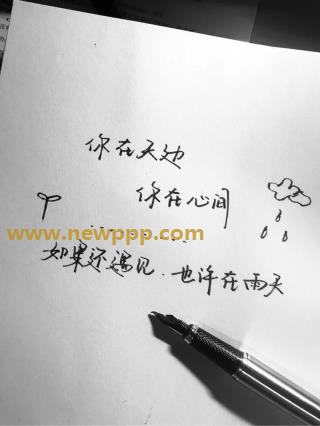 你在天边
你在心间
www.newppp.com
如果还遇见.也许在雨天